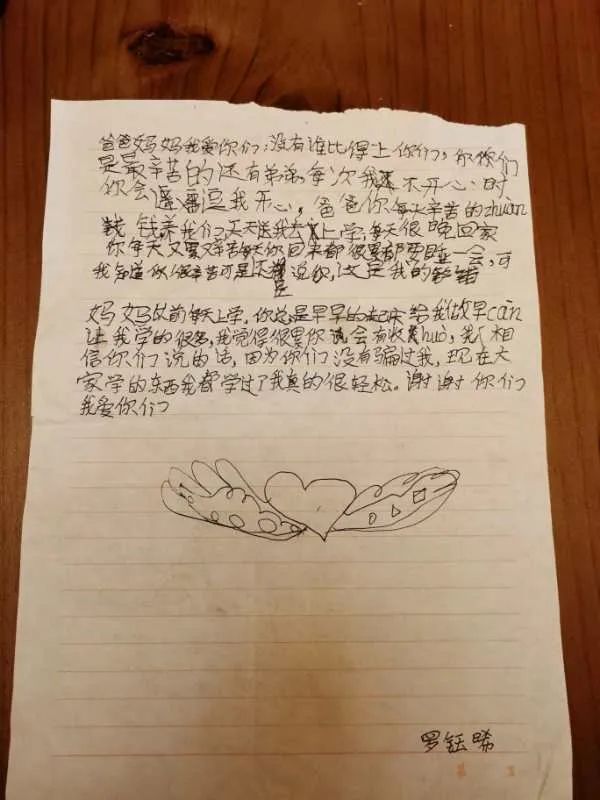 爸爸妈妈我爱你们,没有谁比得上你们,你你们
是最辛苦的还有弟弟,每次我不开心时
你会逗我开心,爸爸你每天辛苦的zhuàn
钱 钱养我们,天天送我去上学,每天很晚回家
你每天又累又辛苦每天你回来都很累都要睡一会,可
我知道你很辛苦可是还说你,这是我的错
妈妈以前每天上学,你总是早早的起床给我做早cān
让我学的很多,我觉得很累你说会有收huò,我相
信你们说的话,因为你们没有骗过我,现在大
家学的东西我都学过了我真的很轻松。谢谢你们
我爱你们
罗钰晞